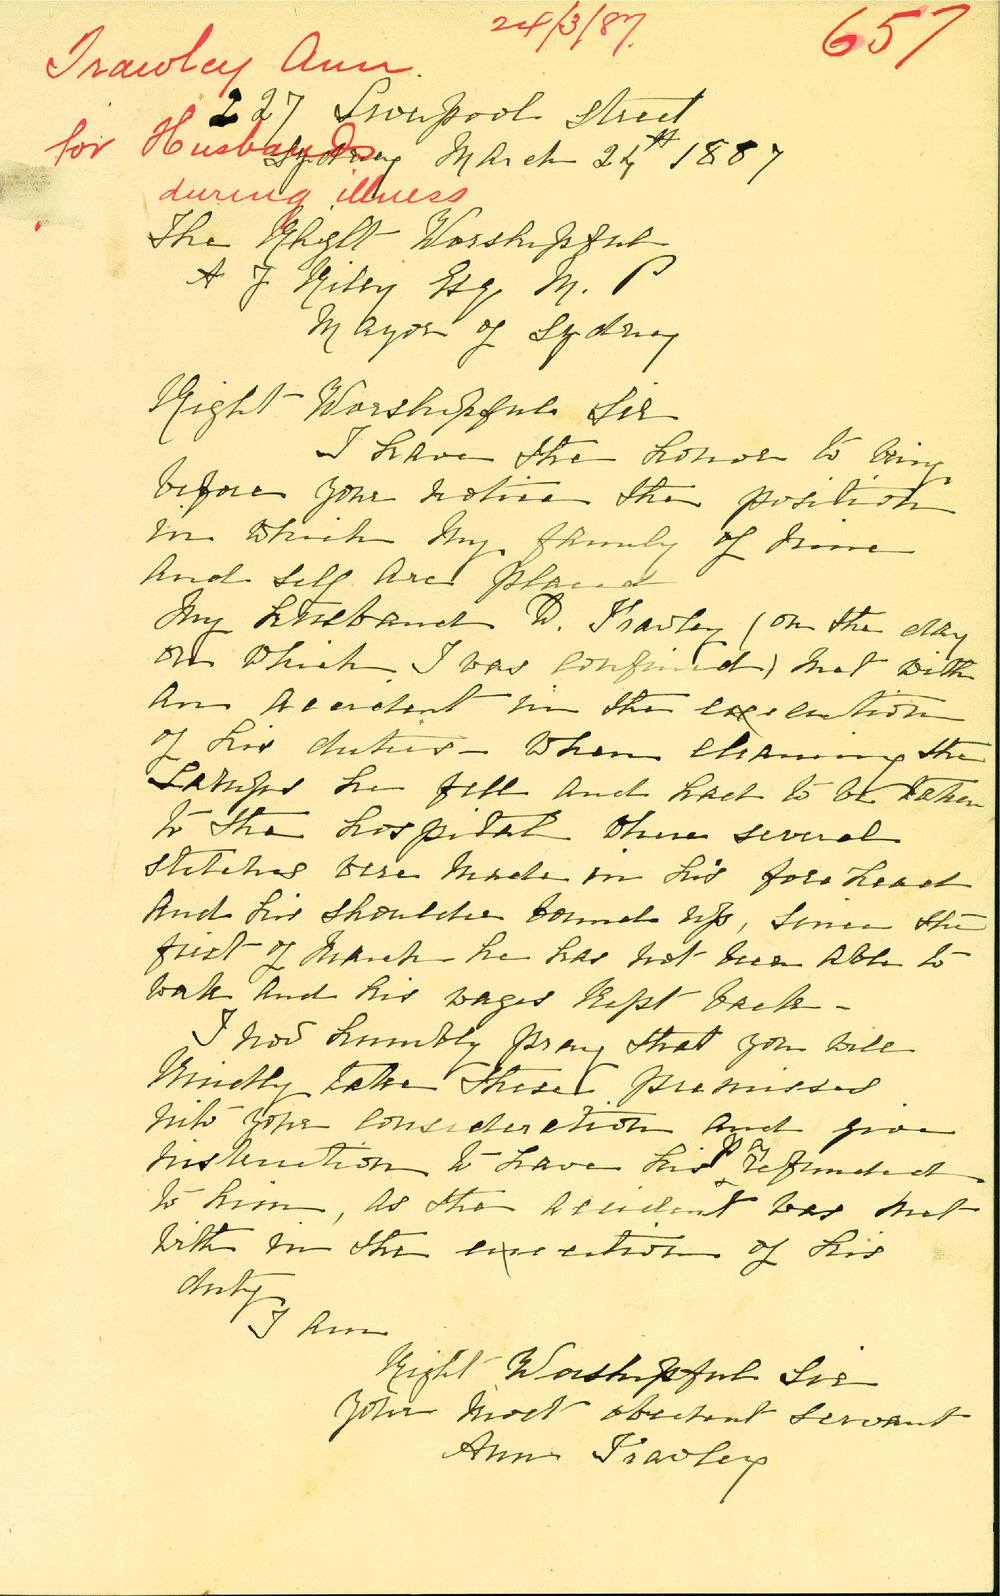 24/3/87.
657
Trawley Ann.
227 Liverpool Street
for Husbands
Sydney March 24th 1887
during illness
The Right Worshipful
A J Riley Esq M. P
Mayor of Sydney
Right Worshipful Sir
I have the honor to bring
before your notice the position
in which my family of nine
and self are placed
My husband D. Trawley (on the day
on which I was confined) met with
an accident in the execution
of his duties - When cleaning the
Lamps he fell and had to be taken
to the hospital where several
stitches were made in his forehead
and his shoulder bound up, since the
first of March he has not been able to
work and his wages kept back -
I now humbly pray that you will
kindly take these premisses
into your consideration and give
instruction to have his pay refunded
to him, as the accident was met
with in the execution of his
duty
I am
Right Worshipful Sir
your most obedient servant
Ann Trawley